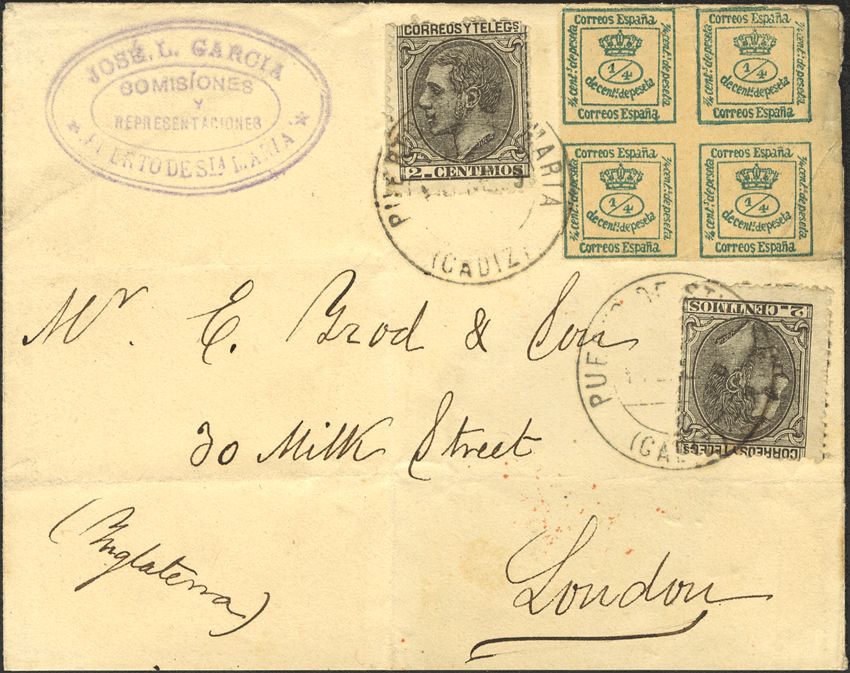 JOSÉ. L. GARCIA
COMISIONES
Y
REPRESENTACIONES
PUERTO DE Sta MARIA
CORREOS Y TELEGs
2. CENTIMOS
MARIA
(CADIZ)
Correos España
¼ cents de peseta
¼
de cents de peseta
¼ cents de peseta
Correos España
Correos España
¼ cents de peseta
¼
de cents de peseta
¼ cents de peseta
Correos España
Correos España
¼ cents de peseta
¼
de cents de peseta
¼ cents de peseta
Correos España
Correos España
¼ cents de peseta
¼
de cents de peseta
¼ cents de peseta
Correos España
2. CENTIMOS
CORREOS Y TELEGs
Mr. E. Brod & Son
30 Milk Street
(Inglaterra)
London